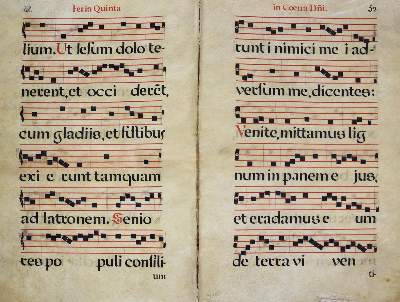 Feria Quinta
lium. Ut Iesum dolo te-
nerent, et occi derēt,
cum gladiis, et fustibus
exi e runt tamquam
ad latronem. Senio
res po puli consili-
um
in Coena Dñi.
runt inimici me i ad-
versum me, dicentes:
Venite, mittamus lig
num in panem e jus,
et eradamus e um
de terra vi ven
ti-